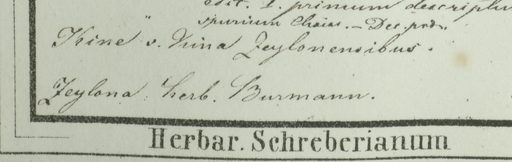 edit. I. primum descriptu
spurium Chaisi. — Dec. prodr.
Kine" v. Kina Zeylonensibus.
Zeylona. herb. Burmann.
Herbar. Schreberianum